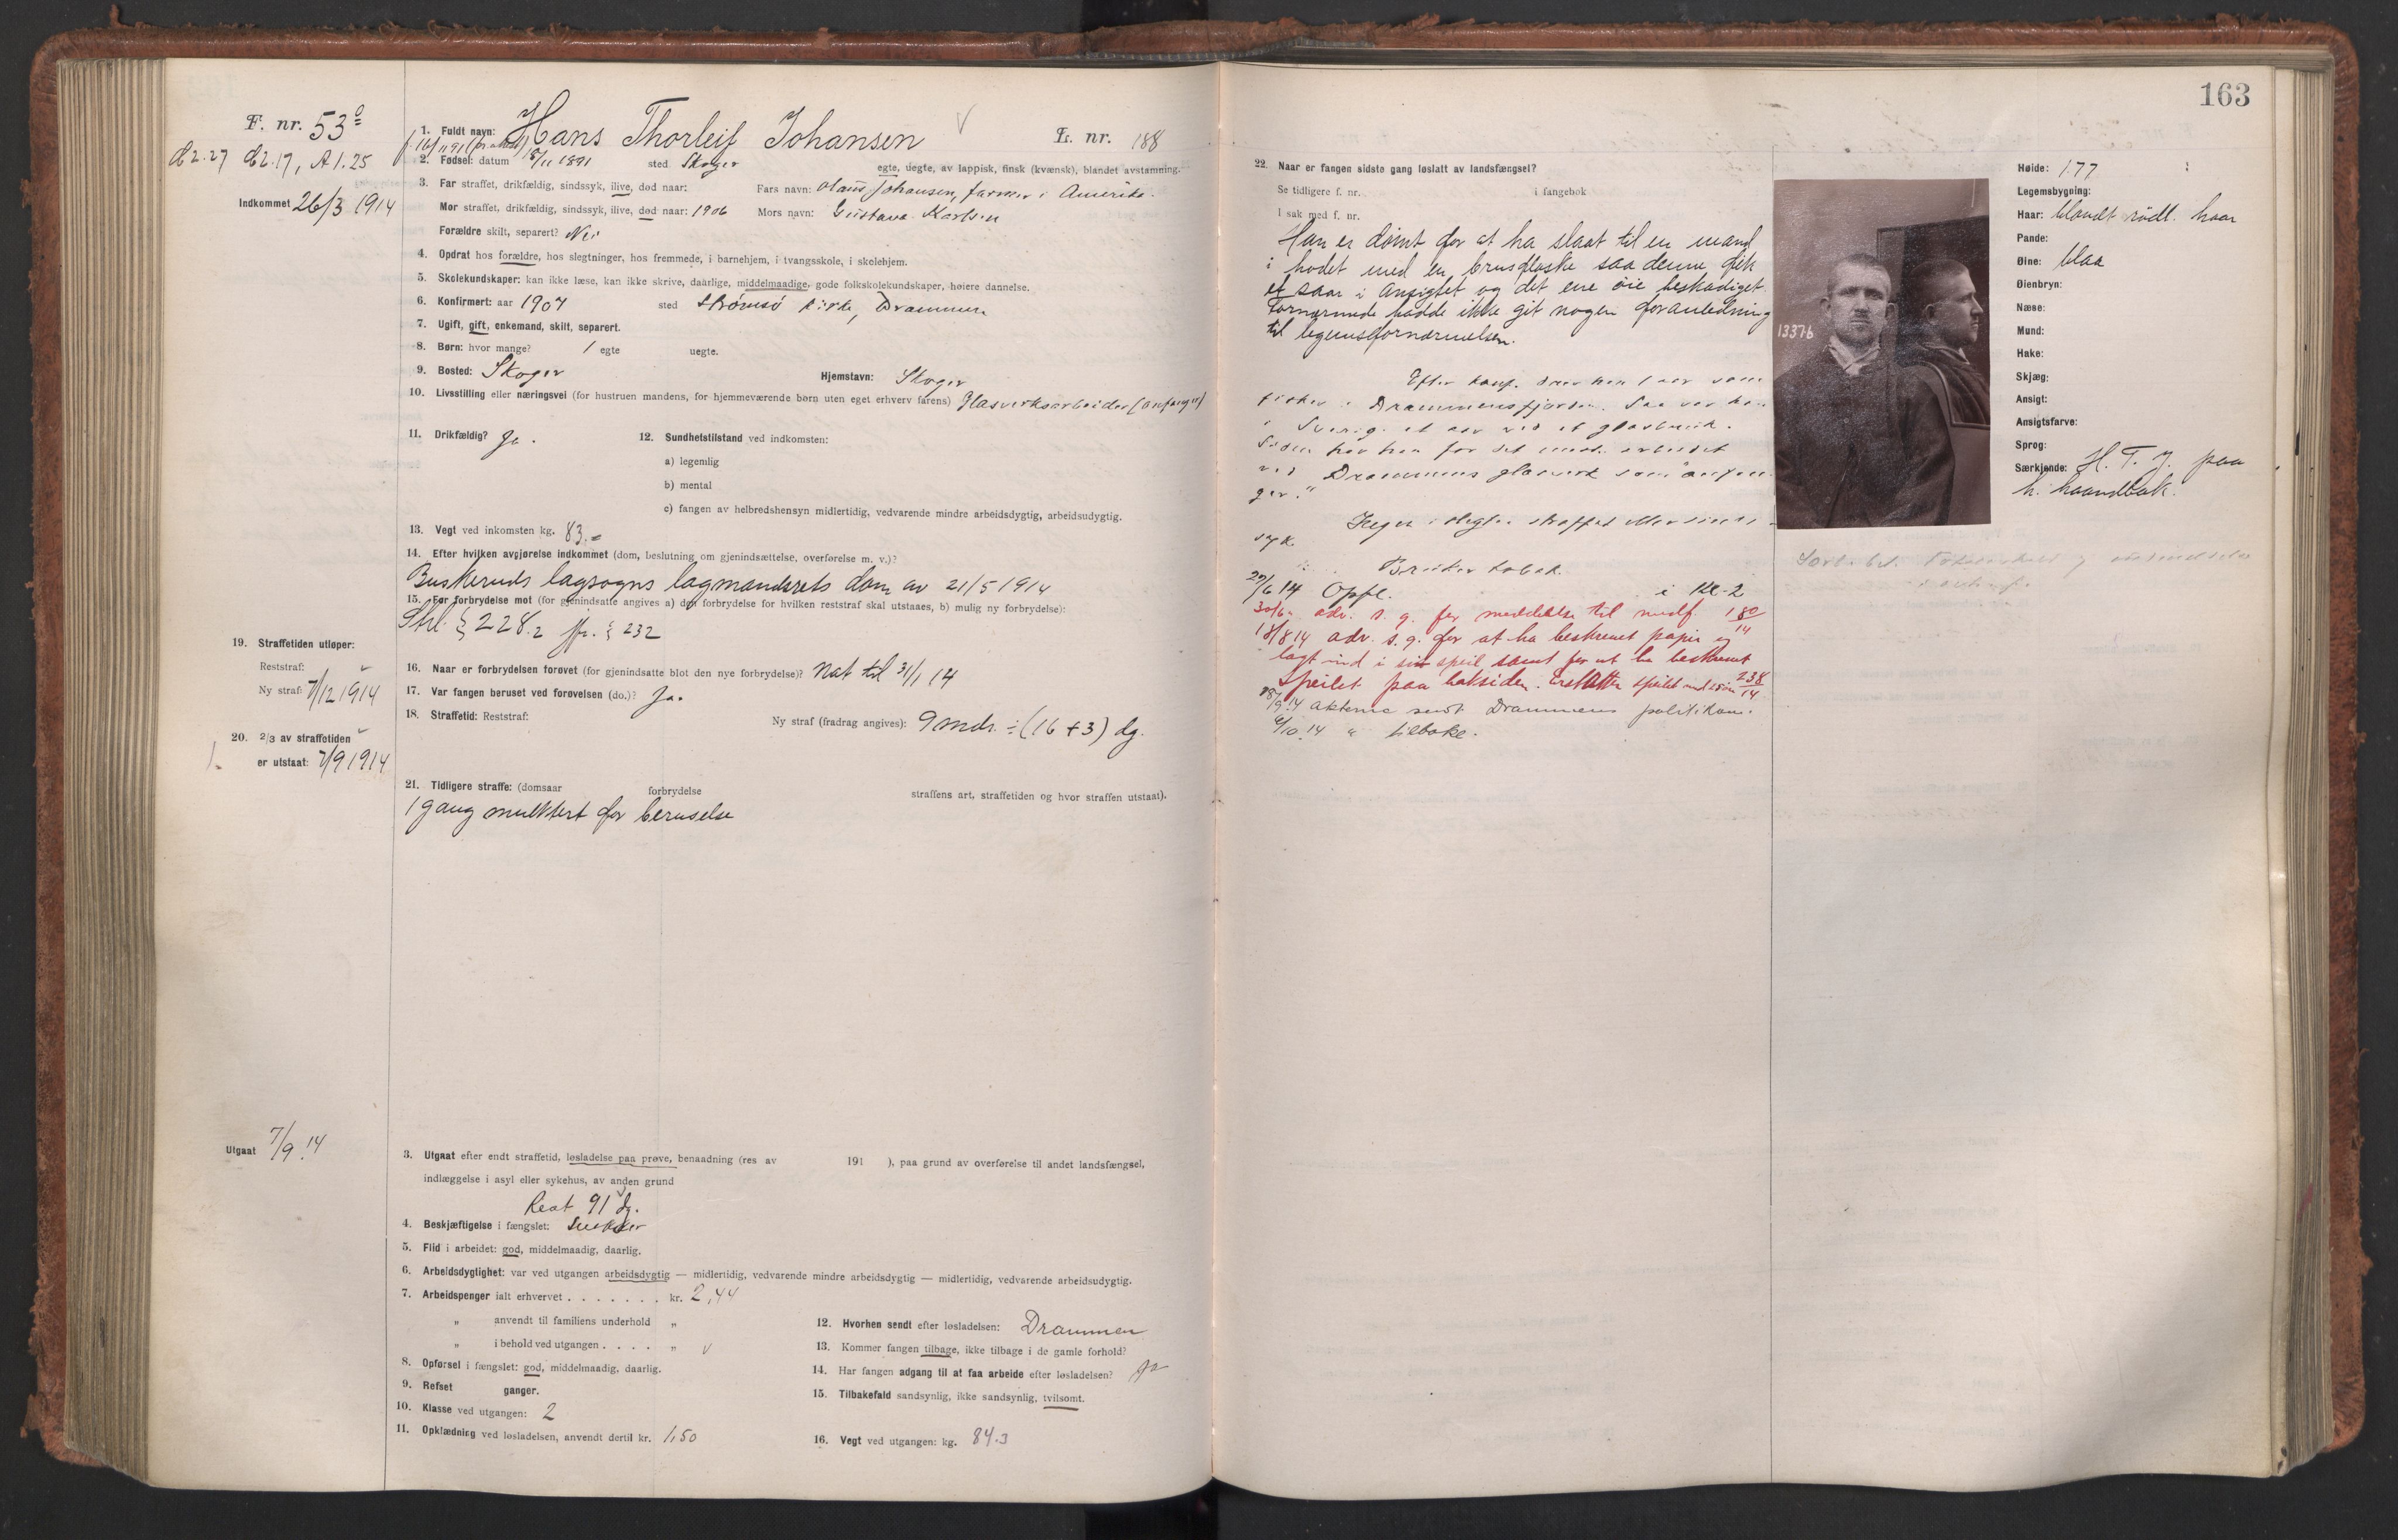 163
F. nr. 53
L. nr. 188
d2.27 d2.17, A1.25
Indkommet 26/3 1914
1. Fuldt navn: Hans Thorleif Johansen
2. Fødsel: datum 18/11 1891 sted Skoger egte, uegte, av lappisk, finsk (kvænsk), blandet avstamning.
3. Far straffet, drikfældig, sindssyk, ilive, død naar: Fars navn: Olaus Johansen, farmer i Amerika.
Mor straffet, drikfældig, sindssyk, ilive, død naar: 1906 Mors navn: Gustava Karlsen
Forældre skilt, separert? Nei
4. Opdrat hos forældre, hos slegtninger, hos fremmede, i barnehjem, i tvangsskole, i skolehjem.
5. Skolekundskaper: kan ikke læse, kan ikke skrive, daarlige, middelmaadige, gode folkskolekundskaper, høiere dannelse.
6. Konfirmert: aar 1907 sted Strømsø kirke, Drammen
7. Ugift, gift, enkemand, skilt, separert.
8. Børn: hvor mange? 1 egte uegte.
9. Bosted: Skoger Hjemstavn: Skoger
10. Livsstilling eller næringsvei (for hustruen mandens, for hjemmeværende børn uten eget erhverv farens) Glasverksarbeider (anfanger)
11. Drikfældig? Ja.
12. Sundhetstilstand ved indkomsten:
a) legemlig
b) mental
c) fangen av helbredshensyn midlertidig, vedvarende mindre arbeidsdygtig, arbeidsudygtig.
13. Vegt ved inkomsten kg. 83.=
14. Efter hvilken avgjørelse indkommet (dom, beslutning om gjenindsættelse, overførelse m. v.)?
Buskeruds lagsogns lagmandsrets dom av 21/5 1914
15. For forbrydelse mot (for gjenindsatte angives a) den forbrydelse for hvilken reststraf skal utstaaes, b) mulig ny forbrydelse):
Strl. § 228.2 jfr. § 232
16. Naar er forbrydelsen forøvet (for gjenindsatte blot den nye forbrydelse)? Nat til 31/1 14
17. Var fangen beruset ved forøvelsen (do.)? Ja.
18. Straffetid: Reststraf: Ny straf (fradrag angives): 9 mdr. ÷ (16 + 3) dg.
19. Straffetiden utløper:
Reststraf:
Ny straf: 7/12 1914
20. 2/3 av straffetiden
er utstaat: 7/9 1914
21. Tidligere straffe: (domsaar forbrydelse straffens art, straffetiden og hvor straffen utstaat).
1 gang mulktert for beruselse
Utgaat 7/9.14
3. Utgaat efter endt straffetid, løsladelse paa prøve, benaadning (res av 191 ), paa grund av overførelse til andet landsfængsel,
indlæggelse i asyl eller sykehus, av anden grund
Rest 91 dg.
4. Beskjæftigelse i fængslet: Snekker
5. Flid i arbeidet: god, middelmaadig, daarlig.
6. Arbeidsdyglighet: var ved utgangen arbeidsdygtig — midlertidig, vedvarende mindre arbeidsdygtig — midlertidig, vedvarende arbeidsudygtig.
7. Arbeidspenger ialt erhvervet . . . . . . . kr. 2,44
„ anvendt til familiens underhold „
„ i behold ved utgangen . . . . „
8. Opførsel i fængslet: god, middelmaadig, daarlig.
9. Refset ganger.
10. Klasse ved utgangen: 2
11. Opklædning ved løsladelsen, anvendt dertil kr. 1,50
12. Hvorhen sendt efter løsladelsen: Drammen
13. Kommer fangen tilbage, ikke tilbage i de gamle forhold?
14. Har fangen adgang til at faa arbeide efter løsladelsen? Ja
15. Tilbakefald sandsynlig, ikke sandsynlig, tvilsomt.
16. Vegt ved utgangen: kg. 84.3
22. Naar er fangen sidste gang løslatt av landsfængsel?
Se tidligere f. nr. i fangebok
I sak med f. nr.
Han er dømt for at ha slaat til en mand
i hodet med en brusflaske saa denne fik
et saar i ansigtet og det ene øie beskadiget.
Fornærmede hadde ikke git nogen foranledning
til legemsfornærmelsen.
Efter konf. drev han 1 aar som
fisker i Drammensfjorden. Saa var han
i Sverige et aar ved et glasbruk.
Siden har han for det meste arbeidet
ved Drammens glasverk som "anfan-
ger."
Ingen i slegten straffet eller sinds-
syk.
Bruker tobak.
29/6 14 Opfl. i Kl. 2
30/6 „ adv. s. g. for meddelelse til medf. 180/14
18/8 14 adv. s. g. for at ha beskrevet papir og
lagt ind i sit speil samt for at ha beskrevet
speilet paa baksiden. Erstatter speilet med 25 øre 238/14
18/9.14 Akterne sendt Drammens politikam.
6/10.14 „ tilbake.
13376
Høide: 177
Legemsbygning:
Haar: blandt rødl. haar
Pande:
Øine: blaa
Øienbryn:
Næse:
Mund:
Hake:
Skjæg:
Ansigt:
Ansigtsfarve:
Sprog:
Særkjende: H. T. J. paa
h. haandbak.